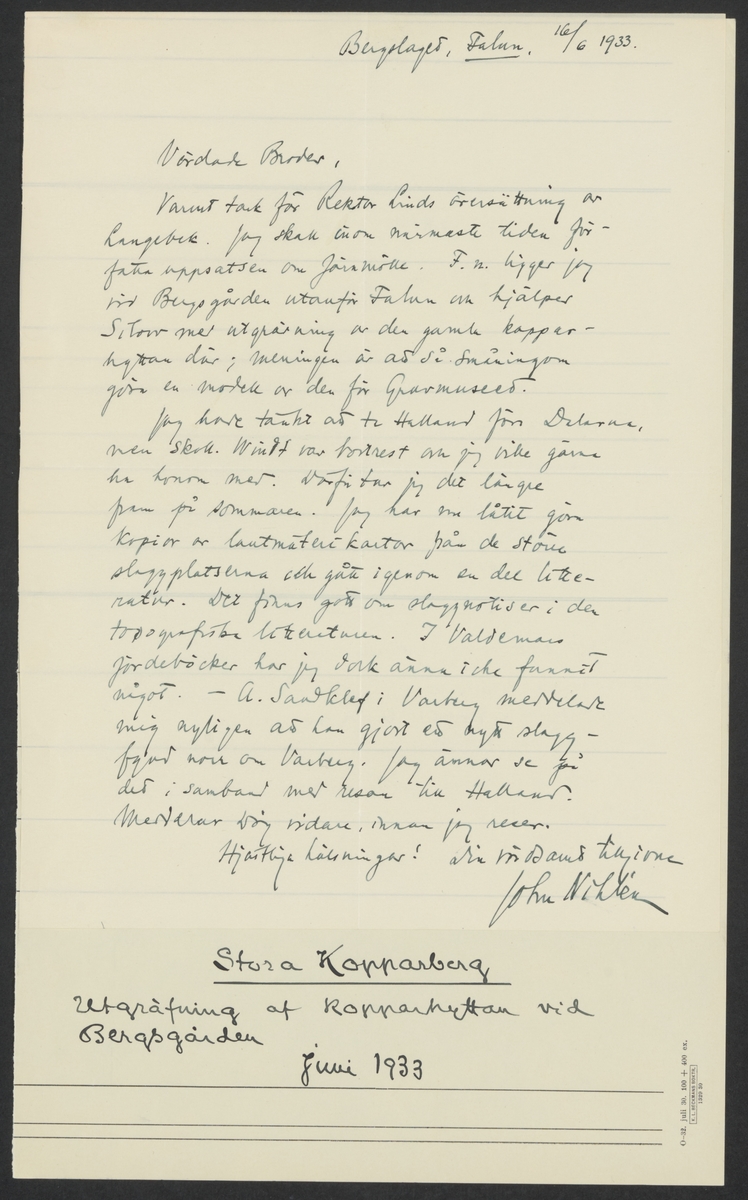 Bergslaget, Falun, 16/6 1933.
Vördade Broder,
Varmt tack för Rektor Linds översättning av
Langebek. Jag skall inom närmaste tiden för-
fatta uppsatsen om Järnmölle. F. n. ligger jag
vid Bergsgården utanför Falun och hjälper
med utgrävning av den gamla koppar-
hyttan där; meningen är att så småningom
göra en modell av den för Gruvmuseet.
Jag hade tänkt att ta Halland före Dalarna,
men Skoll. Windt var bortrest och jag ville gärna
ha honom med. Därför tar jag det längre
fram på sommaren. Jag har nu låtit göra
kopior av lantmäterikartor från de större
slaggplatserna och gått igenom en del litte-
ratur. Det finns gott om slaggnotiser i den
topografiska litteraturen. I Valdemars
jordeböcker har jag dock ännu icke funnit
något. — A. Sandklef i Varberg meddelade
mig nyligen att han gjort ett nytt slagg-
fynd norr om Varberg. Jag ämnar se på
det i samband med resan till Halland.
Meddelar Dig vidare, innan jag reser.
Hjärtliga hälsningar! Din vördsamt tillgivne
John Nihlén
Stora Kopparberg
Utgräfning af Kopparhyttan vid
Bergsgården
Juni 1933
O-32. juli 30. 100 + 400 ex.